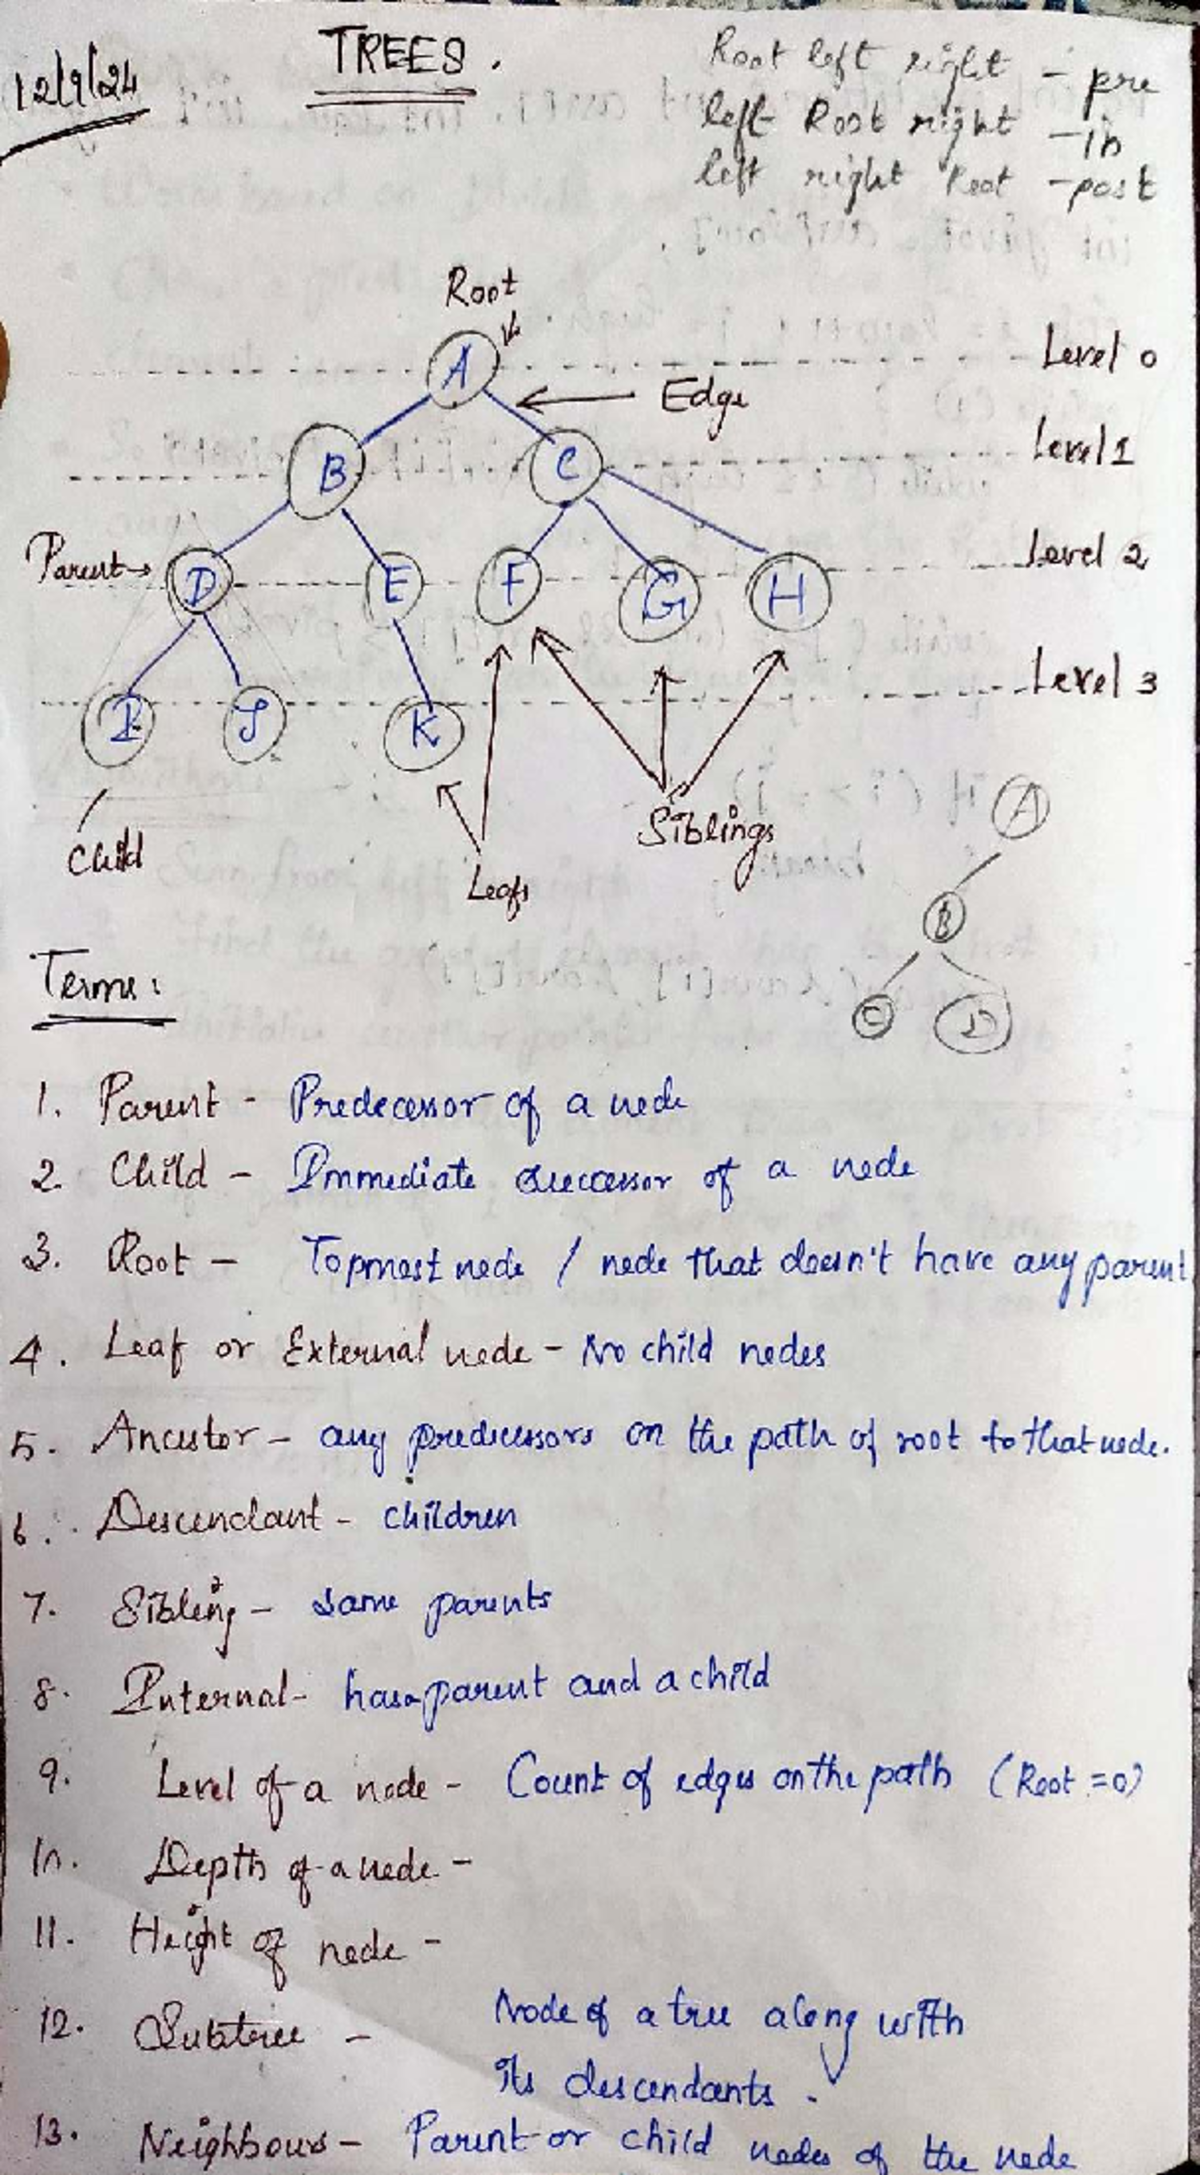 12/9/24
TREES.
Root left right - pre
left Root right - in
left right Root - post
Root
A
Level 0
Edge
B
C
Level 1
Parent
D
E
F
G
H
Level 2
Level 3
I
J
K
Child
Leafs
Siblings
A
B
C
D
Terms:
1. Parent - Predecessor of a node
2. Child - Immediate successor of a node
3. Root - Topmost node / node that doesn't have any parent
4. Leaf or External node - No child nodes
5. Ancestor - any predecessors on the path of root to that node.
6. Descendant - children
7. Sibling - same parents
8. Internal - has a parent and a child
9. Level of a node - Count of edges on the path (Root = 0)
10. Depth of a node -
11. Height of node -
12. Subtree - Node of a tree along with
its descendants.
13. Neighbours - Parent or child nodes of the node